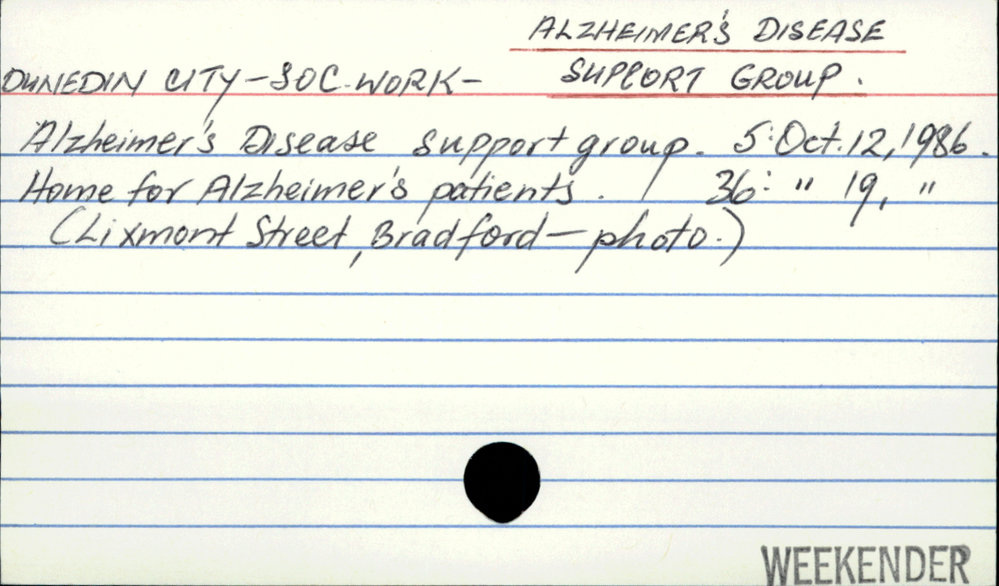 ALZHEIMER'S DISEASE
DUNEDIN CITY-SOC.WORK- SUPPORT GROUP.
Alzheimer's Disease support group. 5: Oct. 12, 1986.
Home for Alzheimer's patients. 36: " 19, "
(Lixmont Street, Bradford-photo.)
WEEKENDER